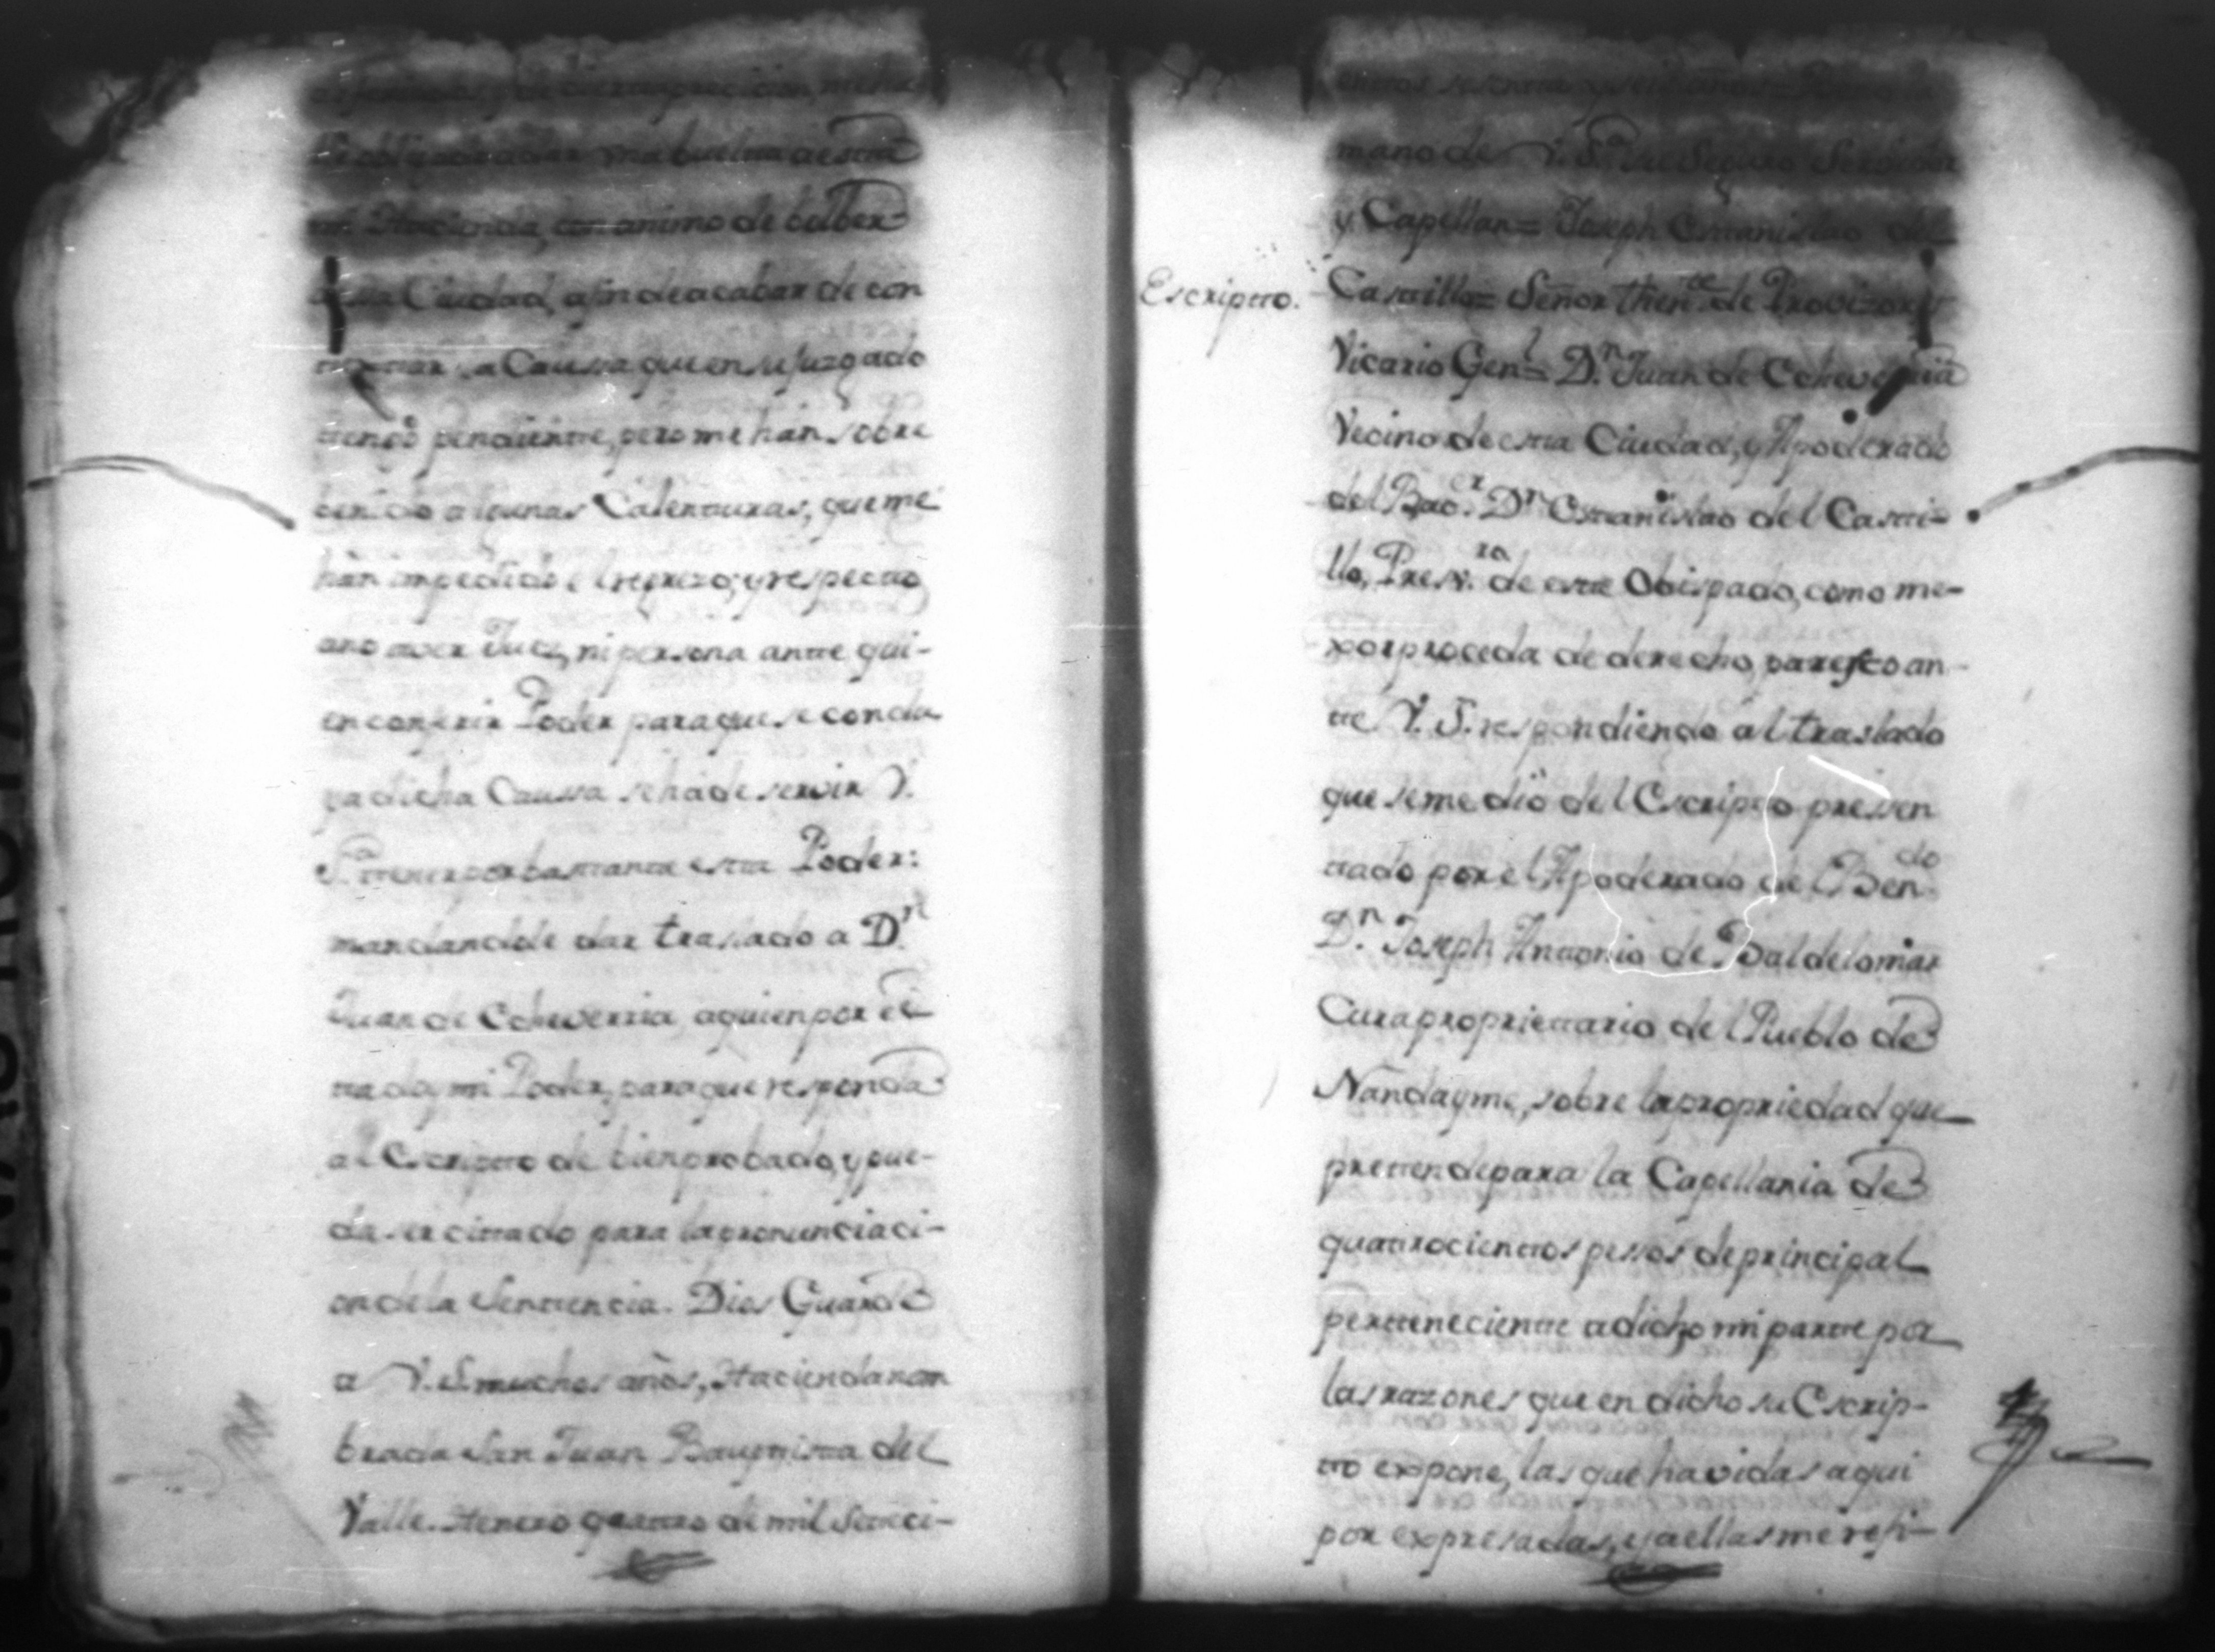 una buelta a esta
mi Hacienda, con animo de bolber
a essa Ciudad, a fin de acabar de con
la Caussa que en su Juzgado
tengo pendiente, pero me han sobre
benido algunas Calenturas, que me
han impedido el regrezo; y respecto
a no aver Juez, ni persona ante qui-
en conferir Poder para que se conclu
ya dicha Caussa se ha de servir V.
S.ª tener por bastante esta Poder:
mandandole dar traslado a D.n
Juan de Echeverria, a quien por el
ttado, mi Poder, para que responda
al Escripto de bien probado, y pue-
da ser cittado para la pronunciaci-
on de la Senttencia. Dios Guarde
a V.S. muchos años, Hacienda nom
brada San Juan Bauptista del
Valle. Henero quattro de mil Setteci-
enttos sesentta y seis años=
mano de V.S.ª su Seguro Servidor
y Capellan= Joseph Esttanislao del
Escripto. Castillo= Señor Thente. de Provizor y
Vicario Gen.l= D.n Juan de Echeverria
Vecino de esta Ciudad, y Apoderado
del Bac.er D.n Esttanislao del Casti-
llo, Presv.ro de este Obispado, como me-
xor proceda de derecho, paresco an-
tte V. S. respondiendo al traslado
que se me dió del Escripto presen
ttado por el Apoderado del Ben.do
D.n Joseph Anttonio de Baldelomar
Cura proprietario del Pueblo de
Nandayme, sobre la propriedad que
prettende para la Capellania de
quattrocienttos pessos de principal
pertteneciente a dicho mi partte por
las razones que en dicho su Escrip-
tto expone, las que havidas aqui
por expresadas, y a ellas me refi-